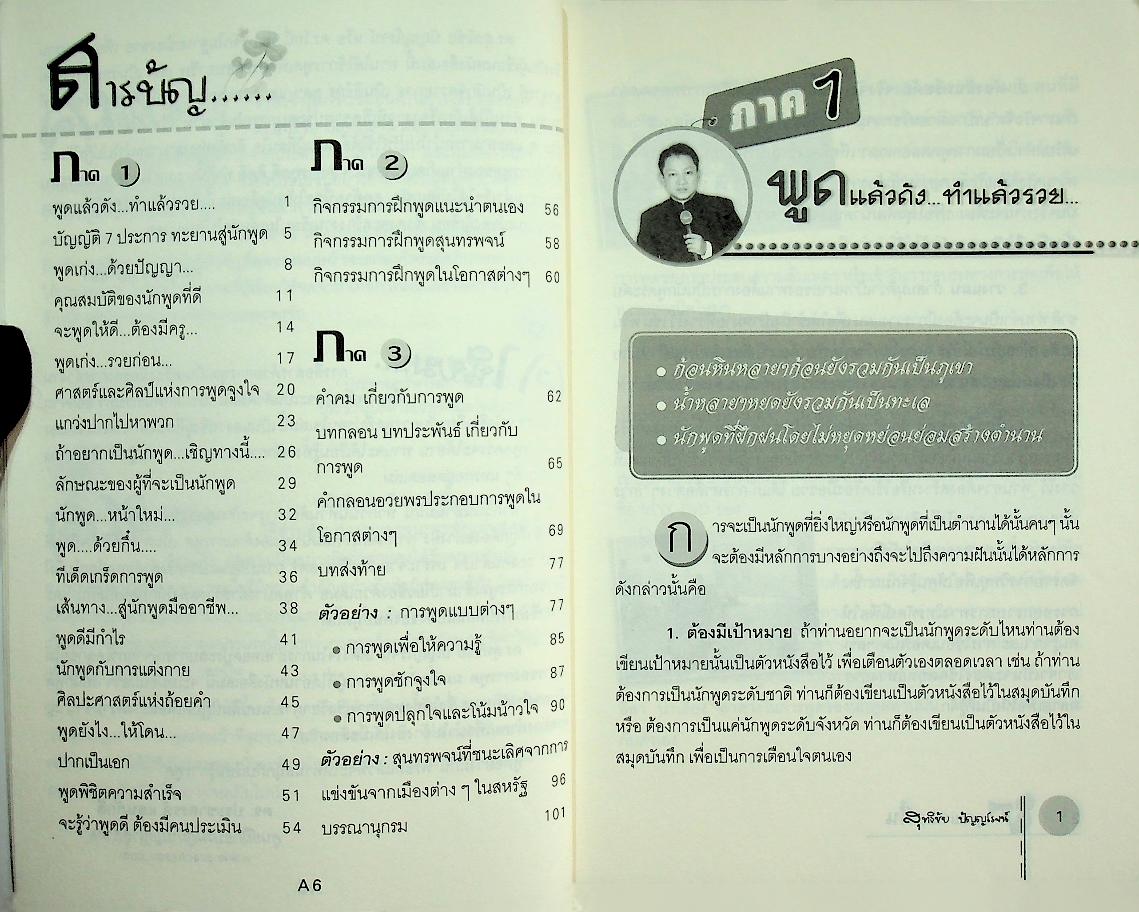 สารบัญ......
ภาค 1
พูดแล้วดัง...ทำแล้วรวย.... 1
บัญญัติ 7 ประการ ทะยานสู่นักพูด 5
พูดเก่ง...ด้วยปัญญา... 8
คุณสมบัติของนักพูดที่ดี 11
จะพูดให้ดี...ต้องมีครู... 14
พูดเก่ง...รวยก่อน... 17
ศาสตร์และศิลป์แห่งการพูดจูงใจ 20
แกว่งปากไปหาพวก 23
ถ้าอยากเป็นนักพูด...เชิญทางนี้.... 26
ลักษณะของผู้ที่จะเป็นนักพูด 29
นักพูด...หน้าใหม่... 32
พูด....ด้วยกึ๋น.... 34
ทีเด็ดเกร็ดการพูด 36
เส้นทาง...สู่นักพูดมืออาชีพ... 38
พูดดีมีกำไร 41
นักพูดกับการแต่งกาย 43
ศิลปะศาสตร์แห่งถ้อยคำ 45
พูดยังไง...ให้โดน... 47
ปากเป็นเอก 49
พูดพิชิตความสำเร็จ 51
จะรู้ว่าพูดดี ต้องมีคนประเมิน 54
ภาค 2
กิจกรรมการฝึกพูดแนะนำตนเอง 56
กิจกรรมการฝึกพูดสุนทรพจน์ 58
กิจกรรมการฝึกพูดในโอกาสต่างๆ 60
ภาค 3
คำคม เกี่ยวกับการพูด 62
บทกลอน บทประพันธ์ เกี่ยวกับ
การพูด 65
คำกลอนอวยพรประกอบการพูดใน
โอกาสต่างๆ 69
บทส่งท้าย 77
ตัวอย่าง : การพูดแบบต่างๆ 77
● การพูดเพื่อให้ความรู้ 85
● การพูดชักจูงใจ 87
● การพูดปลุกใจและโน้มน้าวใจ 90
ตัวอย่าง : สุนทรพจน์ที่ชนะเลิศจากการ
แข่งขันจากเมืองต่าง ๆ ในสหรัฐ 96
บรรณานุกรม 101
A6
ภาค 1
พูดแล้วดัง...ทำแล้วรวย...
● ก้อนหินหลายๆก้อนยังรวมกันเป็นภูเขา
● น้ำหลายๆหยดยังรวมกันเป็นทะเล
● นักพูดที่ฝึกฝนโดยไม่หยุดหย่อนย่อมสร้างตำนาน
การจะเป็นนักพูดที่ยิ่งใหญ่หรือนักพูดที่เป็นตำนานได้นั้นคนๆ นั้น
จะต้องมีหลักการบางอย่างถึงจะไปถึงความฝันนั้นได้หลักการ
ดังกล่าวนั้นคือ
1. ต้องมีเป้าหมาย ถ้าท่านอยากจะเป็นนักพูดระดับไหนท่านต้อง
เขียนเป้าหมายนั้นเป็นตัวหนังสือไว้ เพื่อเตือนตัวเองตลอดเวลา เช่น ถ้าท่าน
ต้องการเป็นนักพูดระดับชาติ ท่านก็ต้องเขียนเป็นตัวหนังสือไว้ในสมุดบันทึก
หรือ ต้องการเป็นแค่นักพูดระดับจังหวัด ท่านก็ต้องเขียนเป็นตัวหนังสือไว้ใน
สมุดบันทึก เพื่อเป็นการเตือนใจตนเอง
สุทธิชัย ปัญญโรจน์ 1